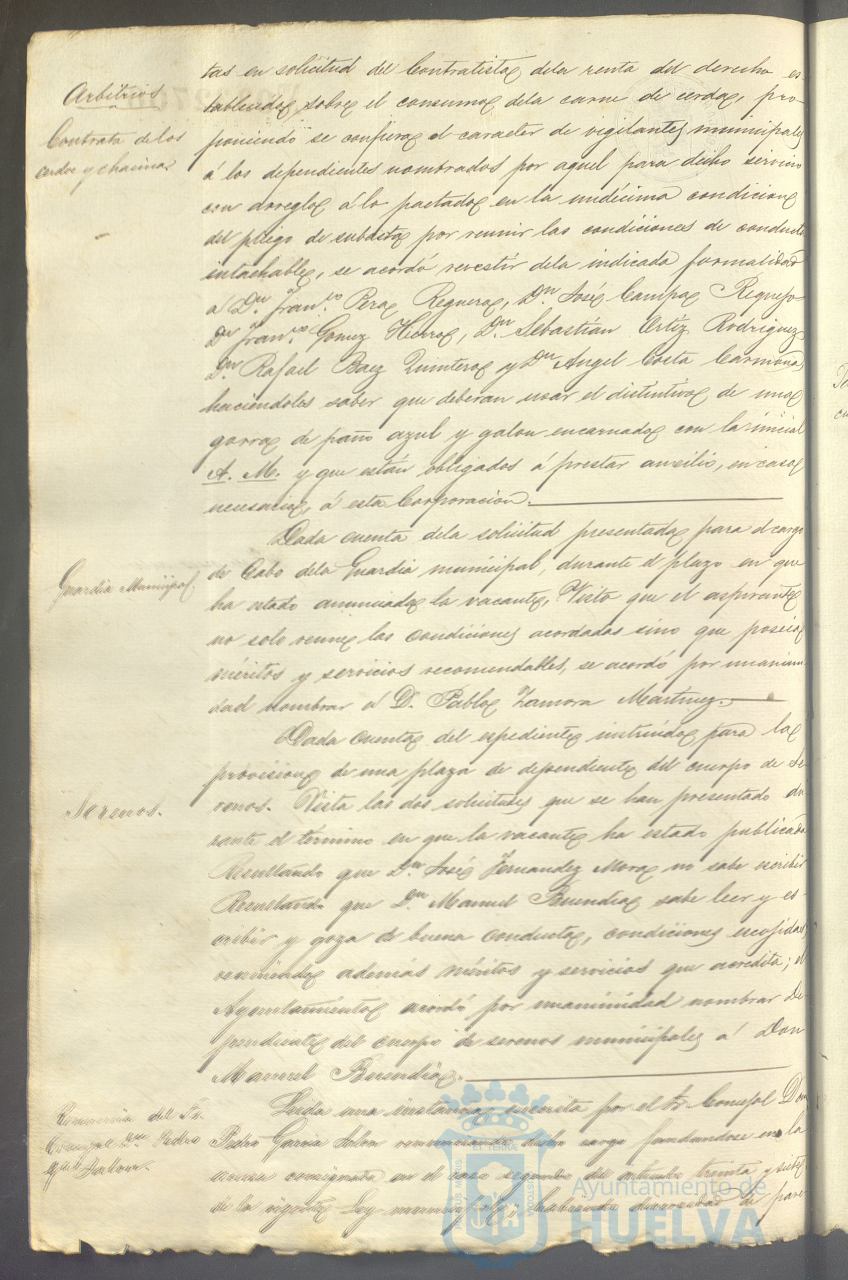 Arbitrios
Contrata de los
cerdos y chacina
tas en solicitud del Contratista dela renta del derecho es-
tablecido sobre el consumo dela carne de cerda, pro-
poniendo se confiera el caracter de vigilantes municipales
á los dependientes nombrados por aquel para dicho servicio
con arreglo á lo pactado en la undécima condicion
del pliego de subasta por reunir las condiciones de conducta
intachable, se acordó revestir dela indicada formalidad
a Dn. Franco. Pera Reguera, Dn. José Campa Requejo
Dn. Franco. Gomez Hierro, Dn. Sebastián Ortiz Rodriguez
Dn. Rafael Baez Quintero y Dn. Angel Costa Carmona
haciendoles saber que deberan usar el distintivo de una
gorra de paño azul y galon encarnado con la inicial
A. M. y que están obligados á prestar auxilio, en caso
necesario, á esta Corporacion.
Guardia Municipal.
Dada cuenta dela solicitud presentada para el cargo
de Cabo dela Guardia municipal, durante el plazo en que
ha estado anunciada la vacante, Visto que el aspirante
no solo reune las condiciones acordadas sino que posée
méritos y servicios recomendables, se acordó por unanimi-
dad nombrar á D. Pablo Zamora Martinez.
Serenos.
Dada cuenta del espediente instruido para la
provision de una plaza de dependiente del cuerpo de Se-
renos. Vista las dos solicitudes que se han presentado du-
rante el término en que la vacante ha estado publicada
Resultando que Dn. José Fernandez Mora no sabe escribir
Resultando que Dn. Manuel Buendia sabe leer y es-
cribir y goza de buena conducta, condiciones escojidas
reuniendo además méritos y servicios que acredita; el
Ayuntamiento acordó por unanimidad nombrar De-
pendiente del cuerpo de serenos municipales á Don
Manuel Buendia.
Renuncia del Sr.
Concejal Dn. Pedro
Leida una instancia suscrita por el Sr. Concejal Don
Pedro Garcia renunciando dicho cargo fundandose en la
escusa consignada en el caso segundo del articulo treinta y siete
de la vigente Ley municipal; habiendo de pare-
Ayuntamiento de
HUELVA